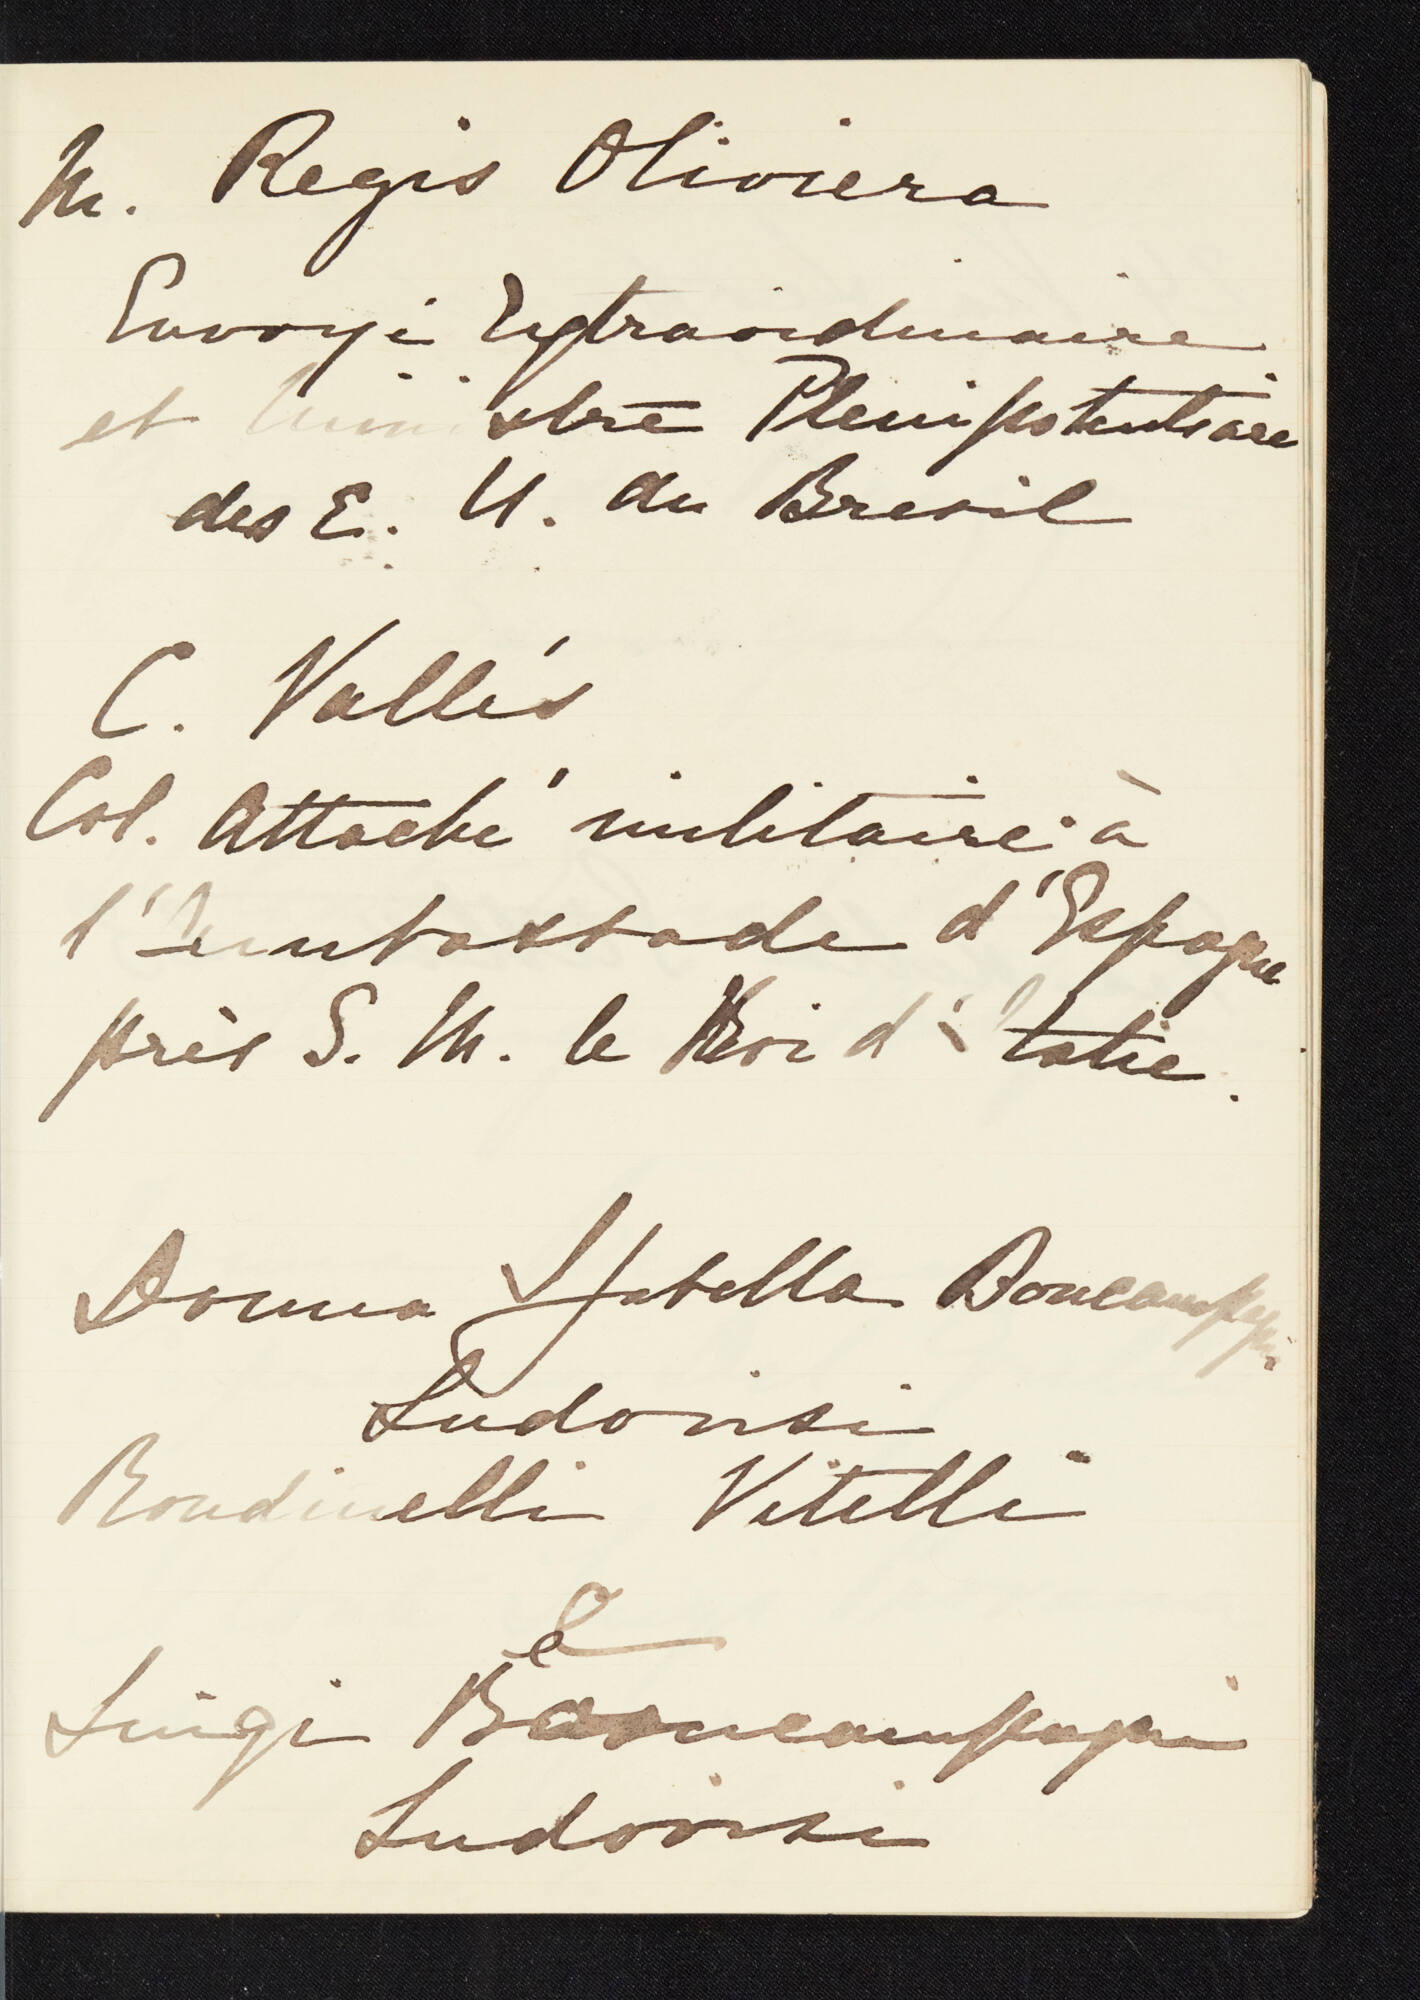 M. Regis Oliviera
Envoyé Extraordinaire
et Ministre Plenipotentiaire
des E. U. du Bresil
C. Vallés
Col. Attaché militaire à
l'Embassade d'Espagne
près S. M. le Roi d'Italie.
Donna Isabella Boncampagni
Ludovisi
Rondinelli Vitelli
e
Luigi Boncampagni
Ludovisi